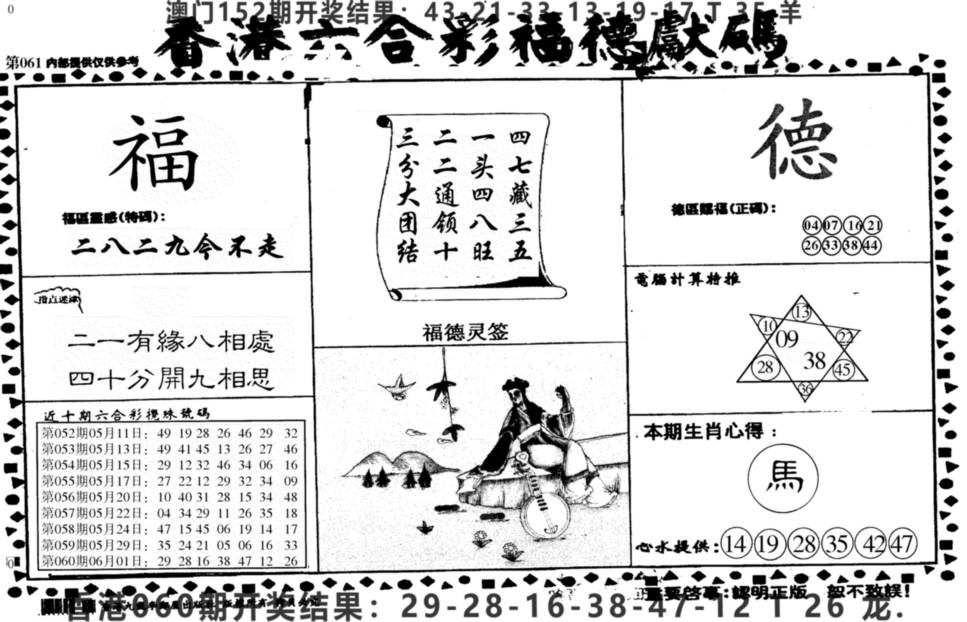 澳门152期开奖结果：43-21-33-13-19-17 T 35 羊
香港六合彩福德獻碼
第061内部提供仅供参考
福
福區靈感(特碼)：
二八二九今不走
指点迷津
二一有緣八相處
四十分開九相思
近十期六合彩攪珠號碼
第052期05月11日：49 19 28 26 46 29 32
第053期05月13日：49 41 45 13 26 27 46
第054期05月15日：29 12 32 46 34 06 16
第055期05月17日：27 22 12 29 32 34 09
第056期05月20日：10 40 31 28 15 34 48
第057期05月22日：04 34 29 11 26 35 18
第058期05月24日：47 15 45 06 19 14 17
第059期05月29日：35 24 21 05 06 16 33
第060期06月01日：29 28 16 38 47 12 26
四七藏三五
一头四八旺
二二通领十
三分大团结
福德灵签
德
德區賜福(正碼)：
04 07 16 21
26 33 38 44
電腦計算特推
13
10
09
22
38
28
45
36
本期生肖心得：
馬
心水提供：14 19 28 35 42 47
重要啓事：認明正版 恕不致誤！
香港060期开奖结果：29-28-16-38-47-12 T 26 龙.